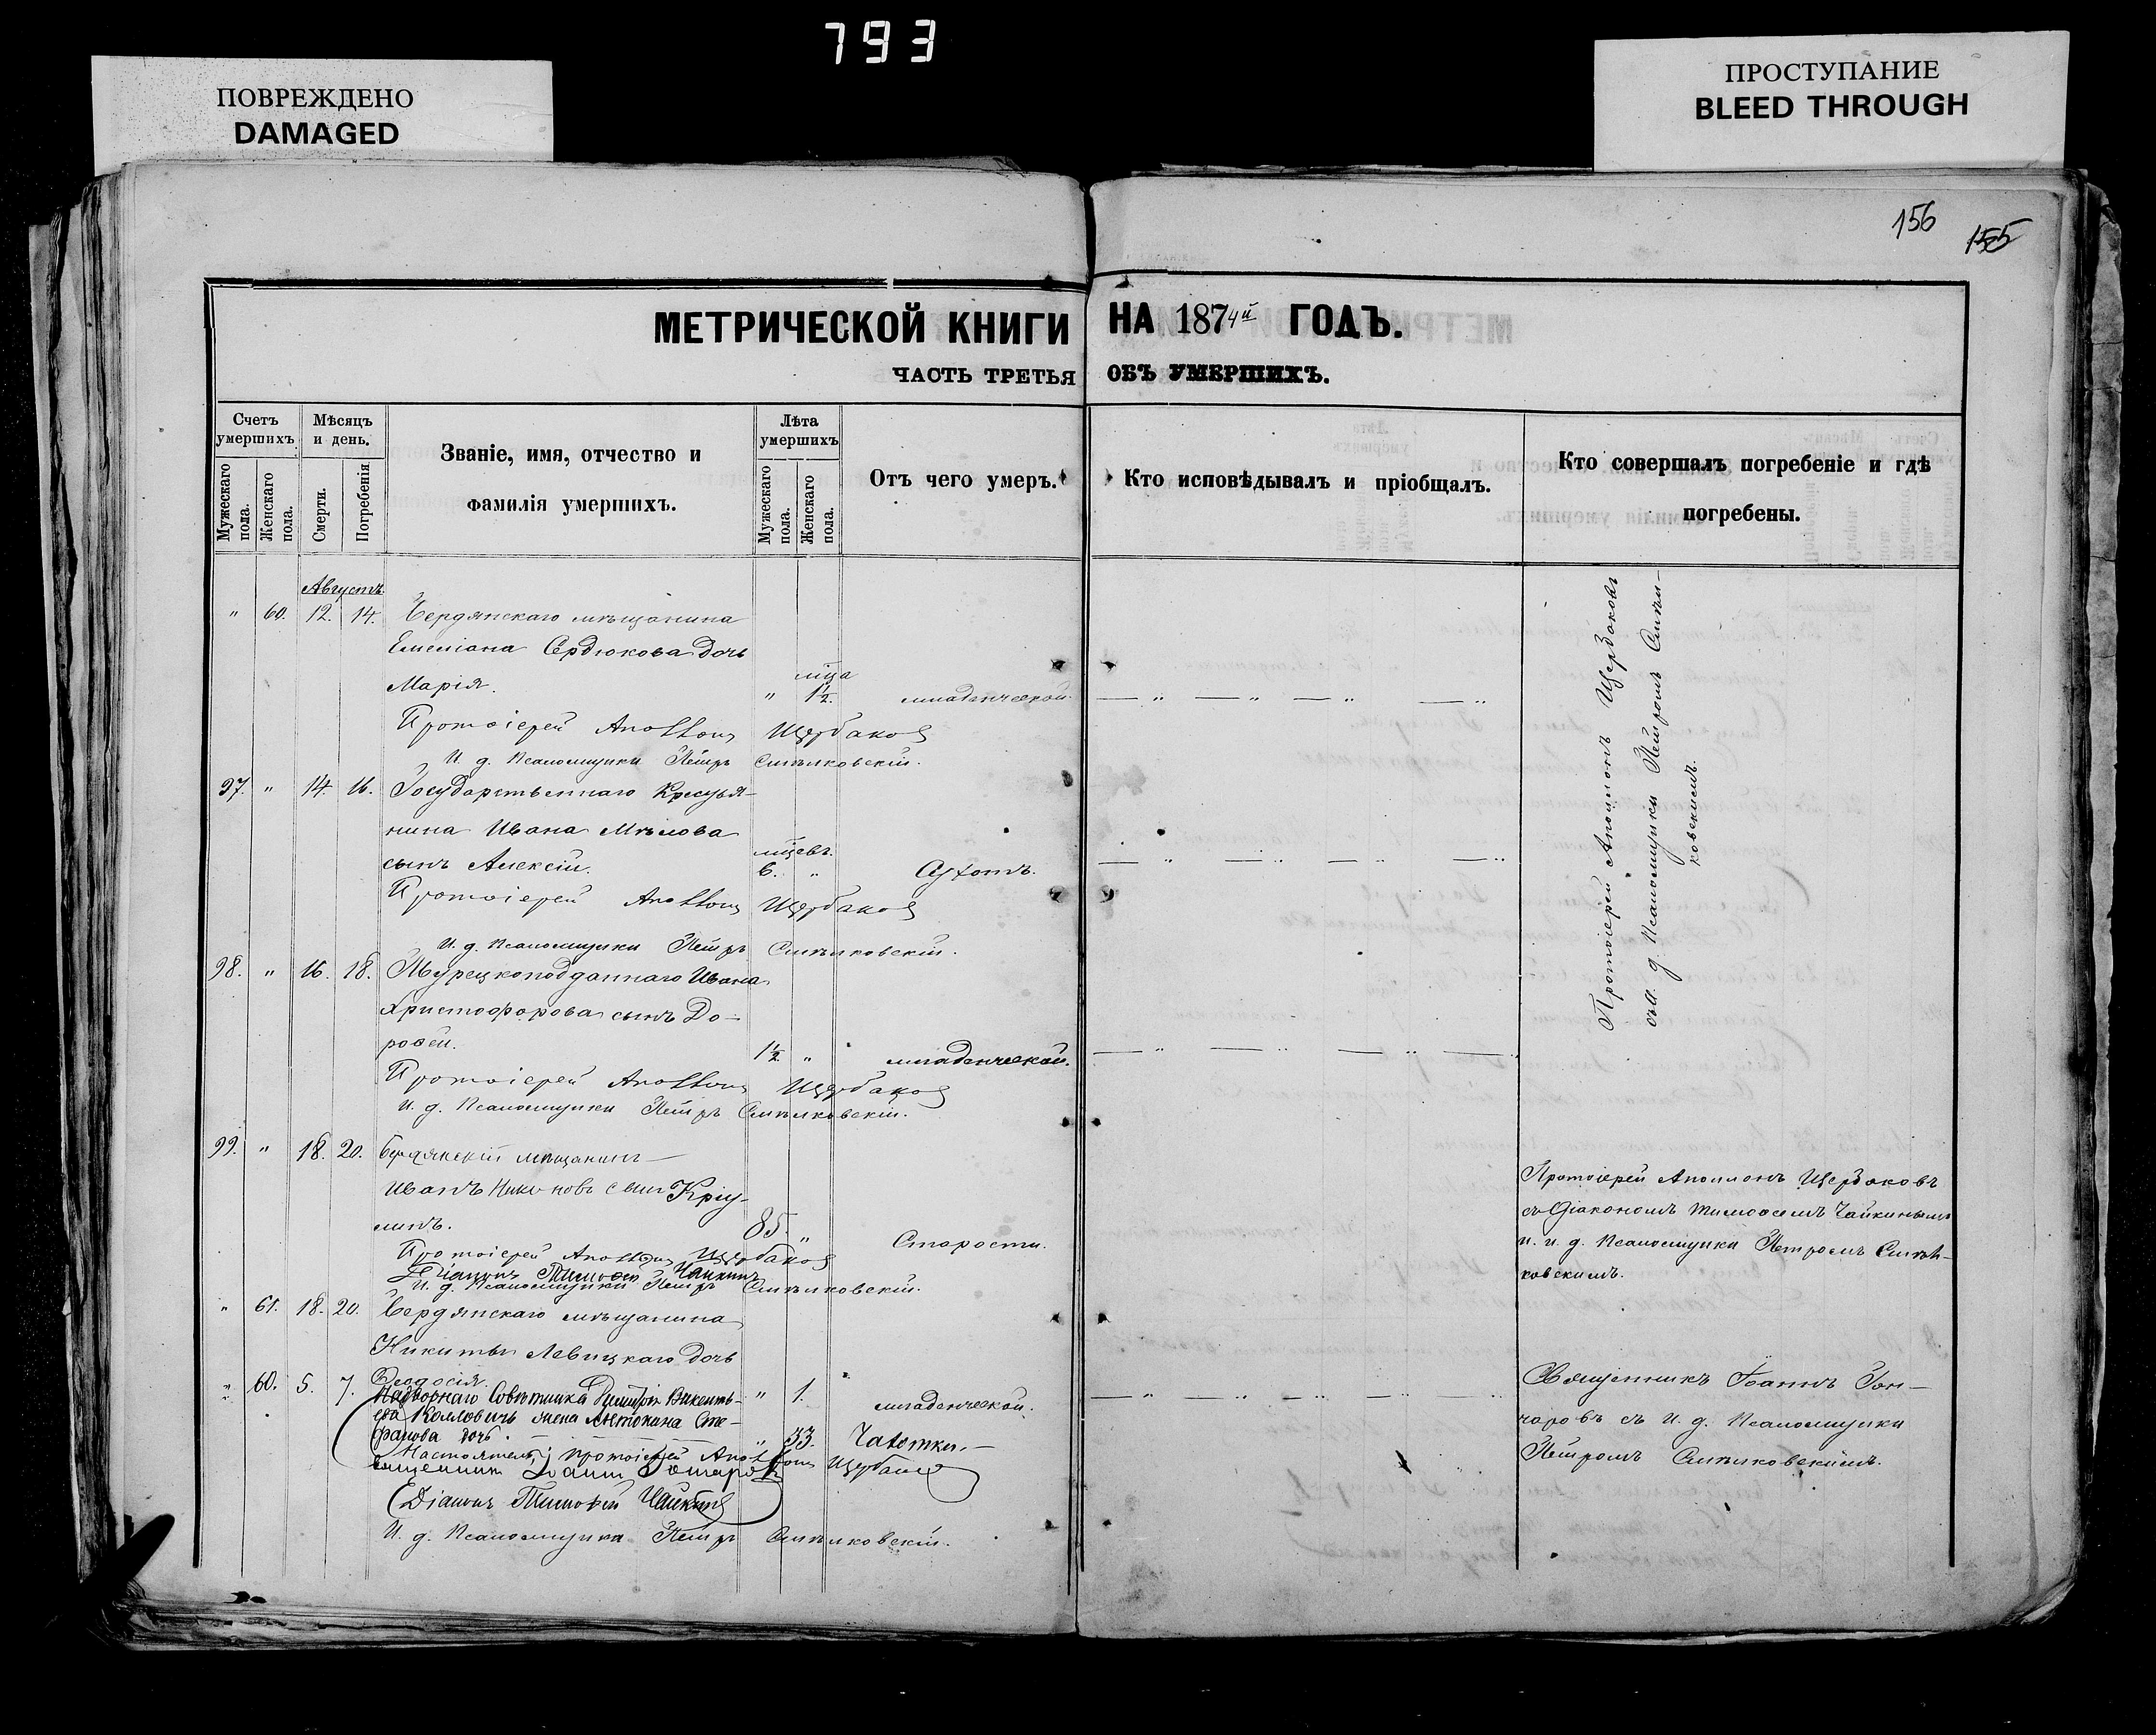 793
ПОВРЕЖДЕНО
DAMAGED
ПРОСТУПАНИЕ
BLEED THROUGH
156
155
МЕТРИЧЕСКОЙ КНИГИ НА 1874й ГОДЪ.
ЧАСТЬ ТРЕТЬЯ ОБЪ УМЕРШИХЪ.
Счетъ умершихъ
Мужескаго пола.
Женскаго пола.
Мѣсяцъ и день.
Смерти.
Погребенія
Званіе, имя, отчество и
фамилія умершихъ.
Лѣта умершихъ
Мужескаго пола.
Женскаго пола.
Отъ чего умеръ.
Кто исповѣдывалъ и пріобщалъ.
Кто совершалъ погребеніе и гдѣ
погребены.
Августъ
" 60. 12. 14. Бердянскаго мѣщанина
Емеліана Сердюкова дочь
Марія. " мца 1½. младенческой.
Протоіерей Аполлонъ Щербаковъ
И. д. Псаломщика Петръ Смѣлковскій.
97. " 14. 16. Государственнаго Крестья-
нина Ивана Мѣлова
сынъ Алексій. мцевъ. 6. "
Протоіерей Аполлонъ Щербаковъ
И. д. Псаломщика Петръ Смѣлковскій.
98. " 16. 18. Турецкоподданнаго Ивана
Христофорова сынъ До-
роѳей. 1½ " младенческой.
Протоіерей Аполлонъ Щербаковъ
И. д. Псаломщика Петръ Смѣлковскій.
Протоіерей Аполлонъ Щербаковъ
съ И. д. Псаломщика Петромъ Смѣл-
ковскимъ.
99. " 18. 20. Бердянскій мѣщанинъ
Иванъ Никоновъ сынъ
линъ. 85. " Старости.
Протоіерей Аполлонъ Щербаковъ
Діаконъ Тимоѳей Чайкинъ
И. д. Псаломщика Петръ Смѣлковскій.
Протоіерей Аполлонъ Щербаковъ
съ Діакономъ Тимоѳеемъ Чайкинымъ
и и. д. Псаломщика Петромъ Смѣл-
ковскимъ.
" 61. 18. 20. Бердянскаго мѣщанина
Никиты Левицкаго дочь
Ѳеодосія. " 1. младенческой.
" 60. 5. 7. Надворнаго Совѣтника Димитрія Викентъ-
ева жена Антонина Сте-
фанова дочь. " 33. Чахотки.
Настоятель, Протоіерей Аполлонъ Щербаковъ
Священникъ Іоаннъ Гончаровъ
Діаконъ Тимоѳей Чайкинъ
И. д. Псаломщика Петръ Смѣлковскій.
Священникъ Іоаннъ Гон-
чаровъ съ И. д. Псаломщика
Петромъ Смѣлковскимъ.